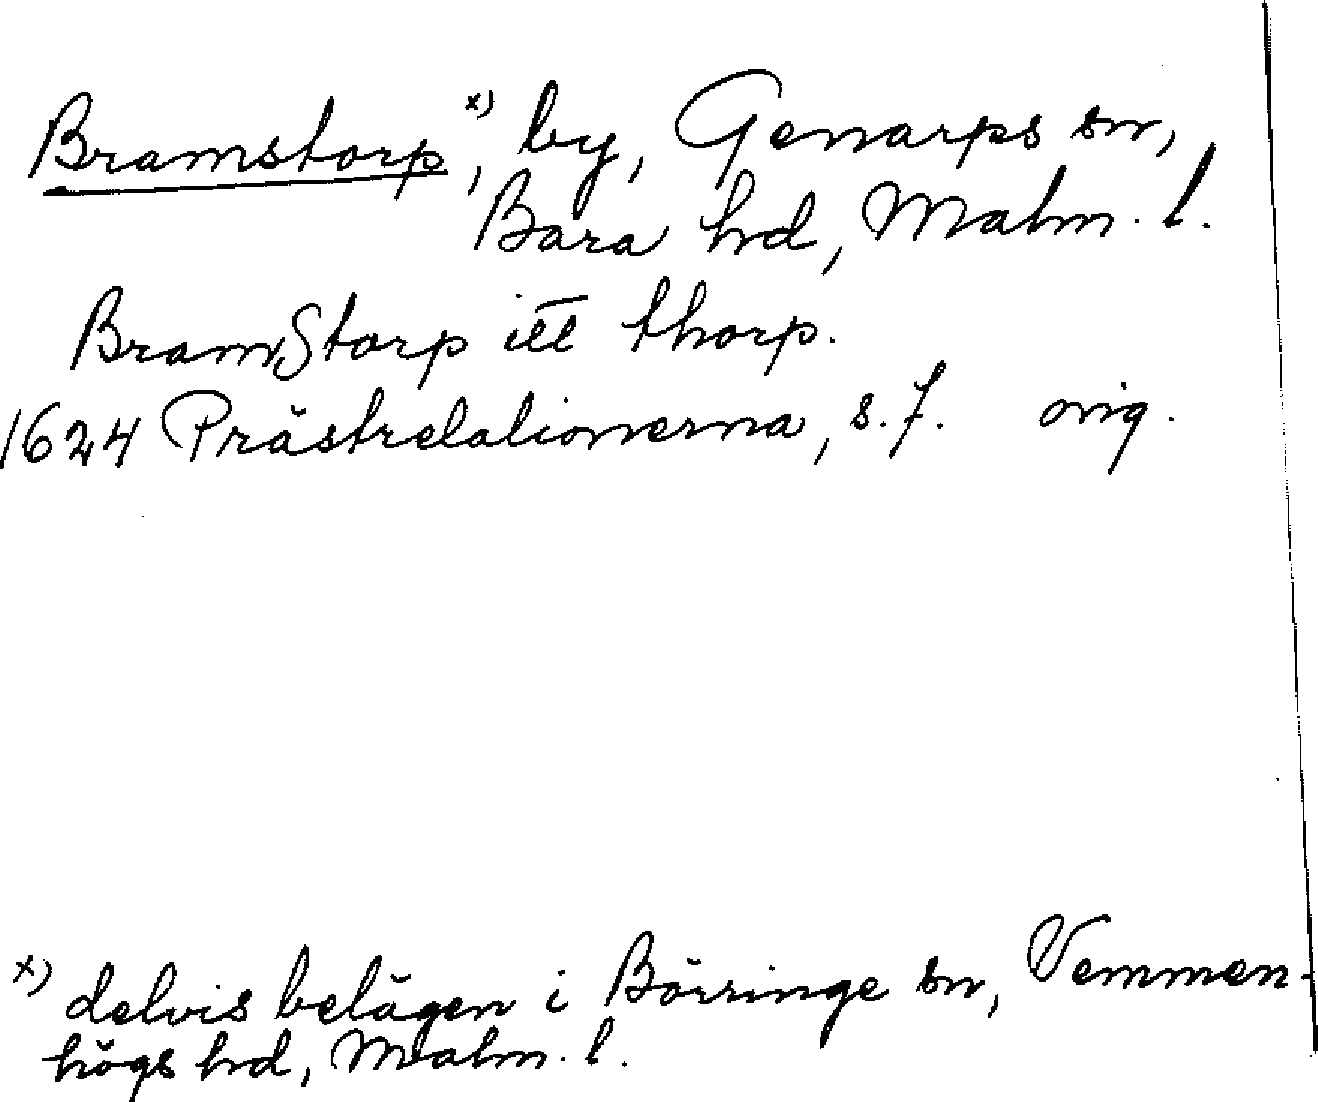 Bramstorp x), by, Genarps sn,
Bara hd, Malm. l.
BramStorp itt thorp.
1624 Prästrelationerna, s. 7. orig.
x) delvis belägen i Börringe sn, Vemmen-
högs hd, Malm. l.